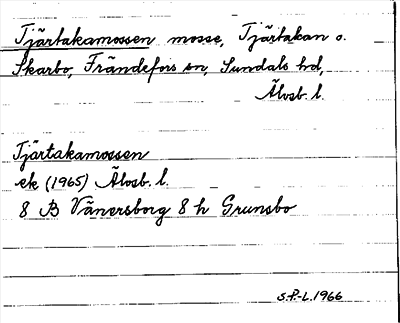 Tjärtakamossen mosse, Tjärtakan o.
Skarbo, Frändefors sn, Sundals hd,
Älvsb. l.
Tjärtakamossen
ek (1965) Älvsb. l.
8 B Vänersborg 8 h Grunsbo
S.P.-L. 1966